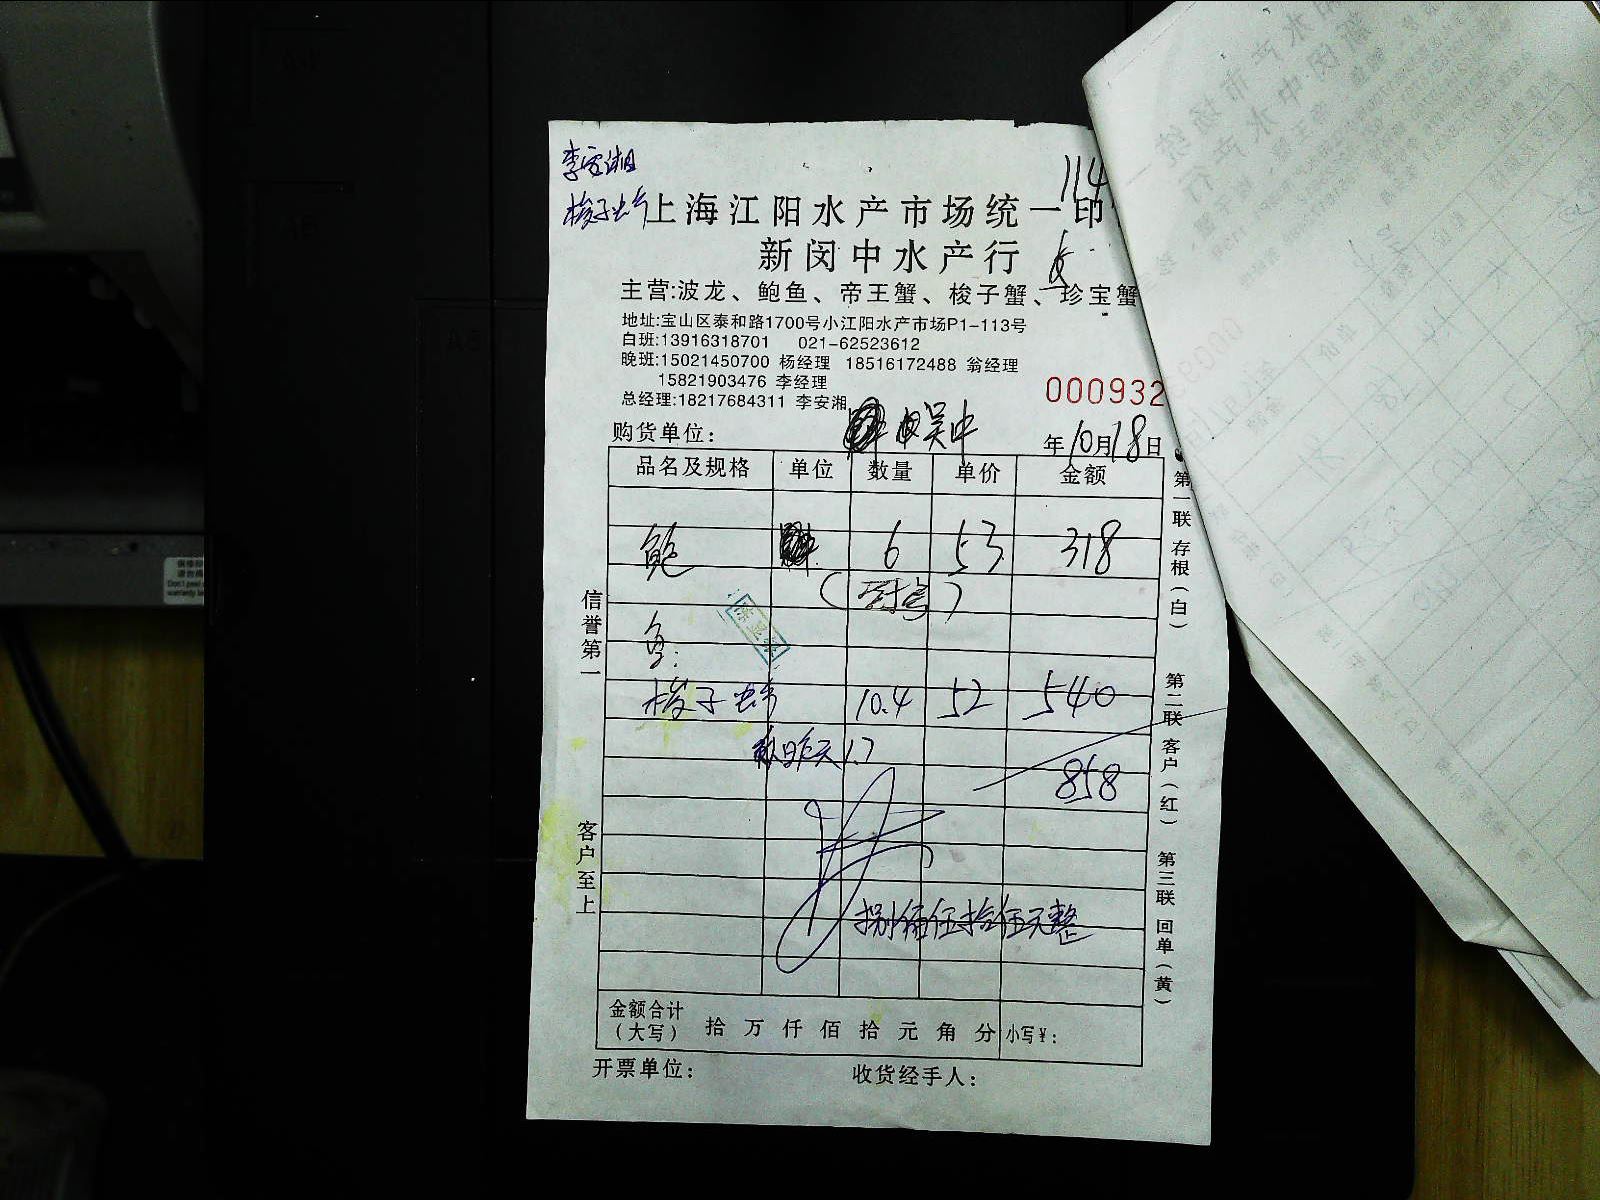 李安湘
114
梭子
上海江阳水产市场统一印
新闵中水产行
主营:波龙、鲍鱼、帝王蟹、梭子蟹、珍宝蟹
地址:宝山区泰和路1700号小江阳水产市场P1-113号
白班:13916318701 021-62523612
晚班:15021450700 杨经理 18516172488 翁经理
15821903476 李经理
总经理:18217684311 李安湘
000932
购货单位: 吴中 年10月18日
品名及规格 单位 数量 单价 金额
鲍 6 53 318
梭子 10.4 52 540
昨天1.7
858
捌佰伍拾伍元整
金额合计(大写) 拾 万 仟 佰 拾 元 角 分 小写¥:
开票单位: 收货经手人:
信誉第一
客户至上
第一联 存根(白) 第二联 客户(红) 第三联 回单(黄)